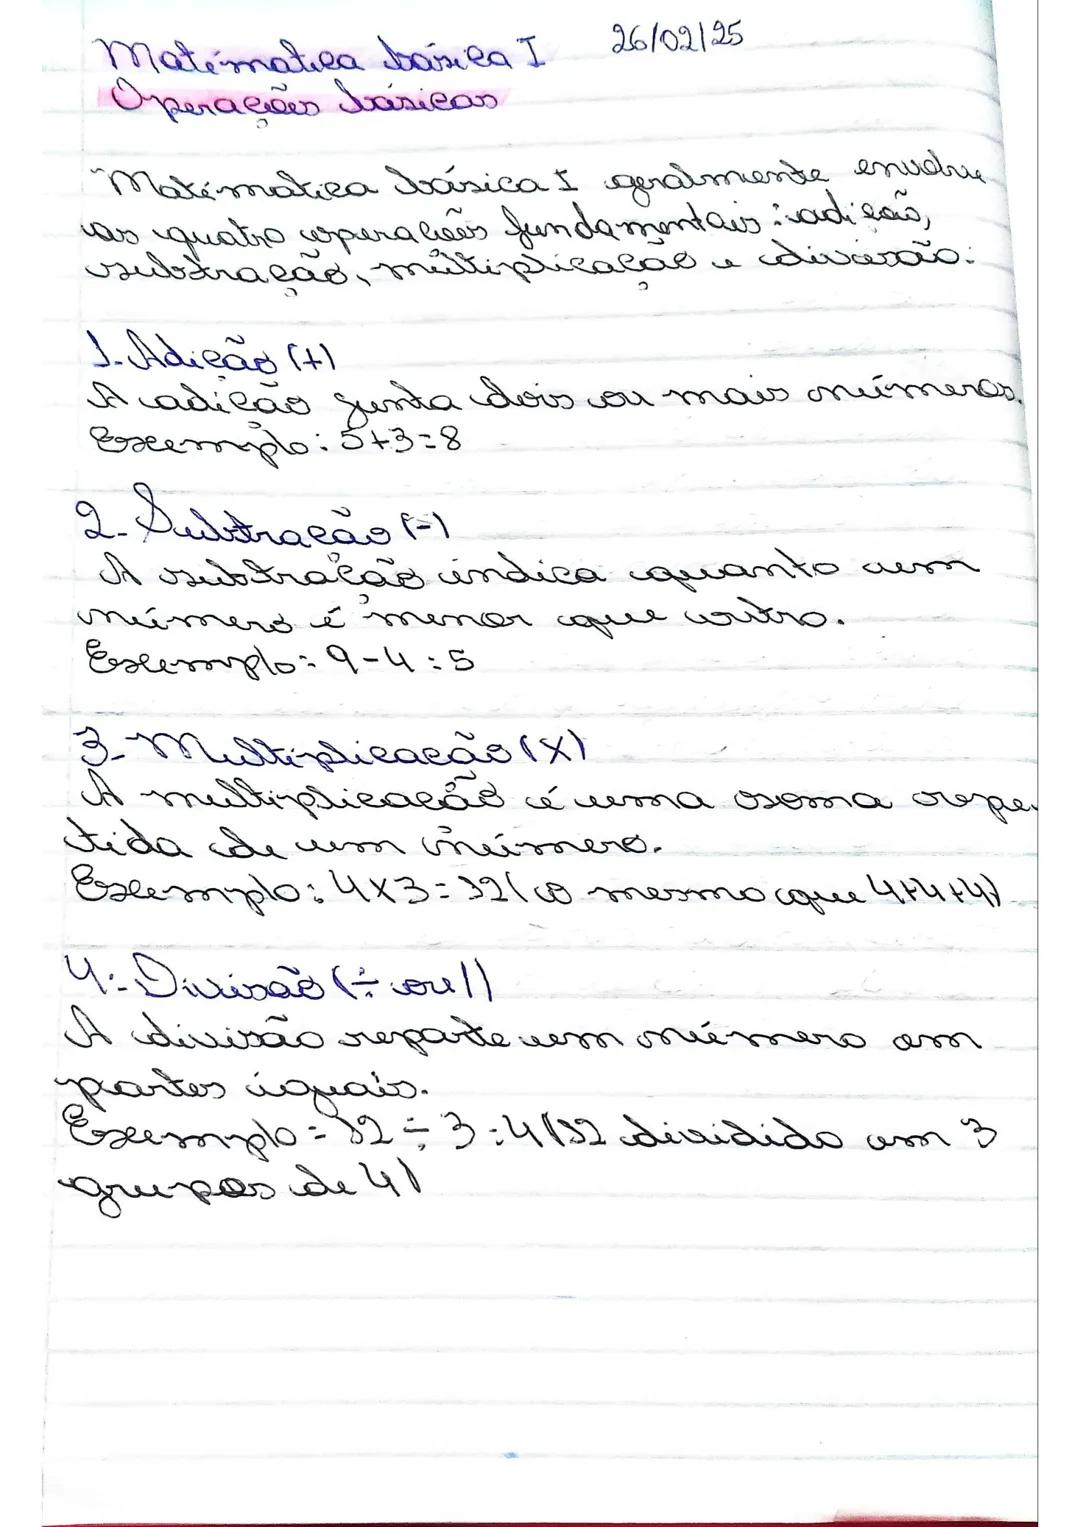 Matemática básica I 26/02/25
Operações básicas
Matemática básica I geralmente envolve
as quatro operações fundamentais: adição,
subtração, multiplicação e divisão:
1- Adição (+)
A adição junta dois ou mais números.
Exemplo: 5+3=8
2- Subtração (-)
A subtração indica quanto um
número é menor que outro.
Exemplo: 9-4=5
3- Multiplicação (x)
A multiplicação é uma soma repe-
tida de um número.
Exemplo: 4x3=12 (o mesmo que 4+4+4)
4- Divisão (÷ ou /)
A divisão reparte um número em
partes iguais.
Exemplo= 12÷3=4 (12 dividido em 3
grupos de 4)